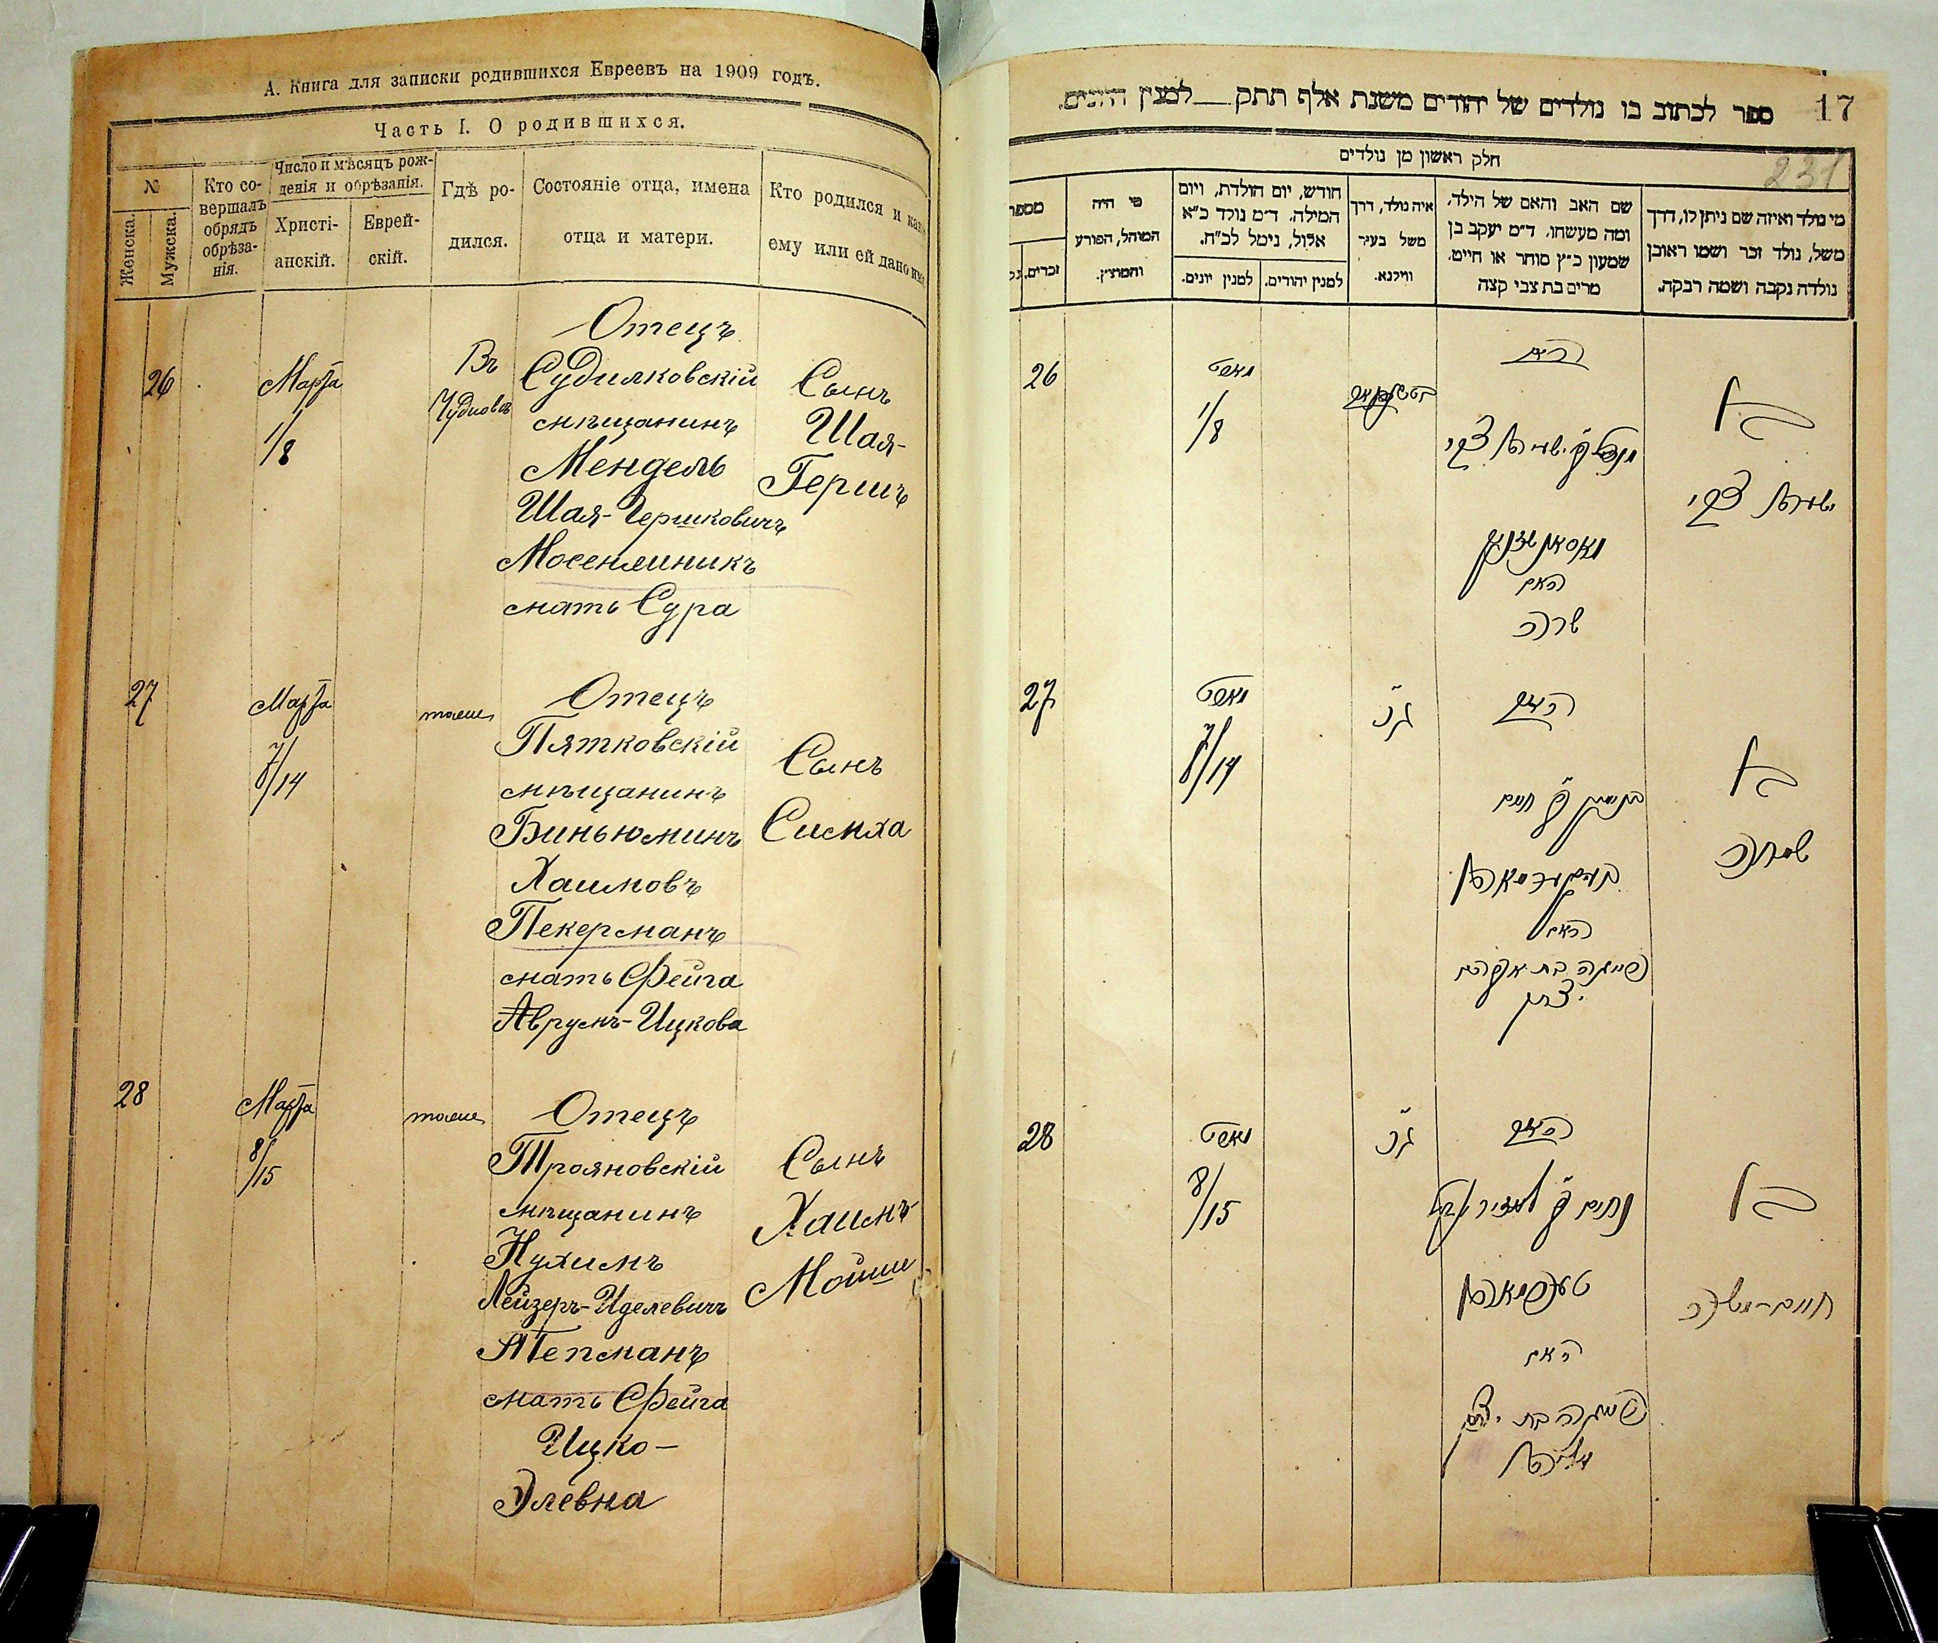 А. Книга для записки родившихся Евреевъ на 1909 годъ.
Часть I. О родившихся.
№
Женска.
Мужска.
Кто со-
вершалъ
обрядъ
обрѣза-
нія.
Число и мѣсяцъ рож-
денія и обрѣзанія.
Христі-
анскій.
Еврей-
скій.
Гдѣ ро-
дился.
Состояніе отца, имена
отца и матери.
Кто родился и как
ему или ей дано
26
Марта
1/8
Въ
Чудновѣ
Отецъ
Судилковскій
мѣщанинъ
Мендель
Шая-Гершковичъ
мать Сура
Сынъ
Шая-
Гершъ
27
Марта
7/14
тоже
Отецъ
Пятковскій
мѣщанинъ
Биньюминъ
Хаимовъ
Пекерманъ
мать Фейга
Аврумъ-Ицкова
Сынъ
Симха
28
Марта
8/15
тоже
Отецъ
Трояновскій
мѣщанинъ
Нухимъ
Лейзеръ-Иделевичъ
мать Фейга
Ицко-
Элевна
Сынъ
Хаимъ
Мойше
ספר לכתוב בו נולדים של יהודים משנת אלף תתק __ למנין היונים.
17
231
חלק ראשון מן נולדים
מי נולד ואיזה שם ניתן לו, דרך
משל, נולד זכר ושמו ראובן
נולדה נקבה ושמה רבקה.
שם האב והאם של הילד,
ומה מעשהו. ד״מ יעקב בן
שמעון כ״ץ סוחר או חייט.
מרים בת צבי קצה
איה נולד, דרך
משל בעיר
ווילנא.
חודש, יום הולדת, ויום
המילה. ד״מ נולד כ״א
אלול, נימל לכ״ח.
למנין יהודים.
למנין יונים.
מי היה
המוהל, הפורע
והמוצץ.
מספר
זכרים.
26
מארט
1/8
האב
מענדל ב״ר ישעיה צבי
האם
שרה
בן
ישעיה צבי
27
מארט
7/14
ג״כ
האב
בנימין ב״ר חיים
פעקערמאן
האם
פייגה בת אברהם
יצחק
בן
שמחה
28
מארט
8/15
ג״כ
האב
נחום ב״ר אליעזר יודל
האם
פייגה בת יצחק
בן
חיים-משה